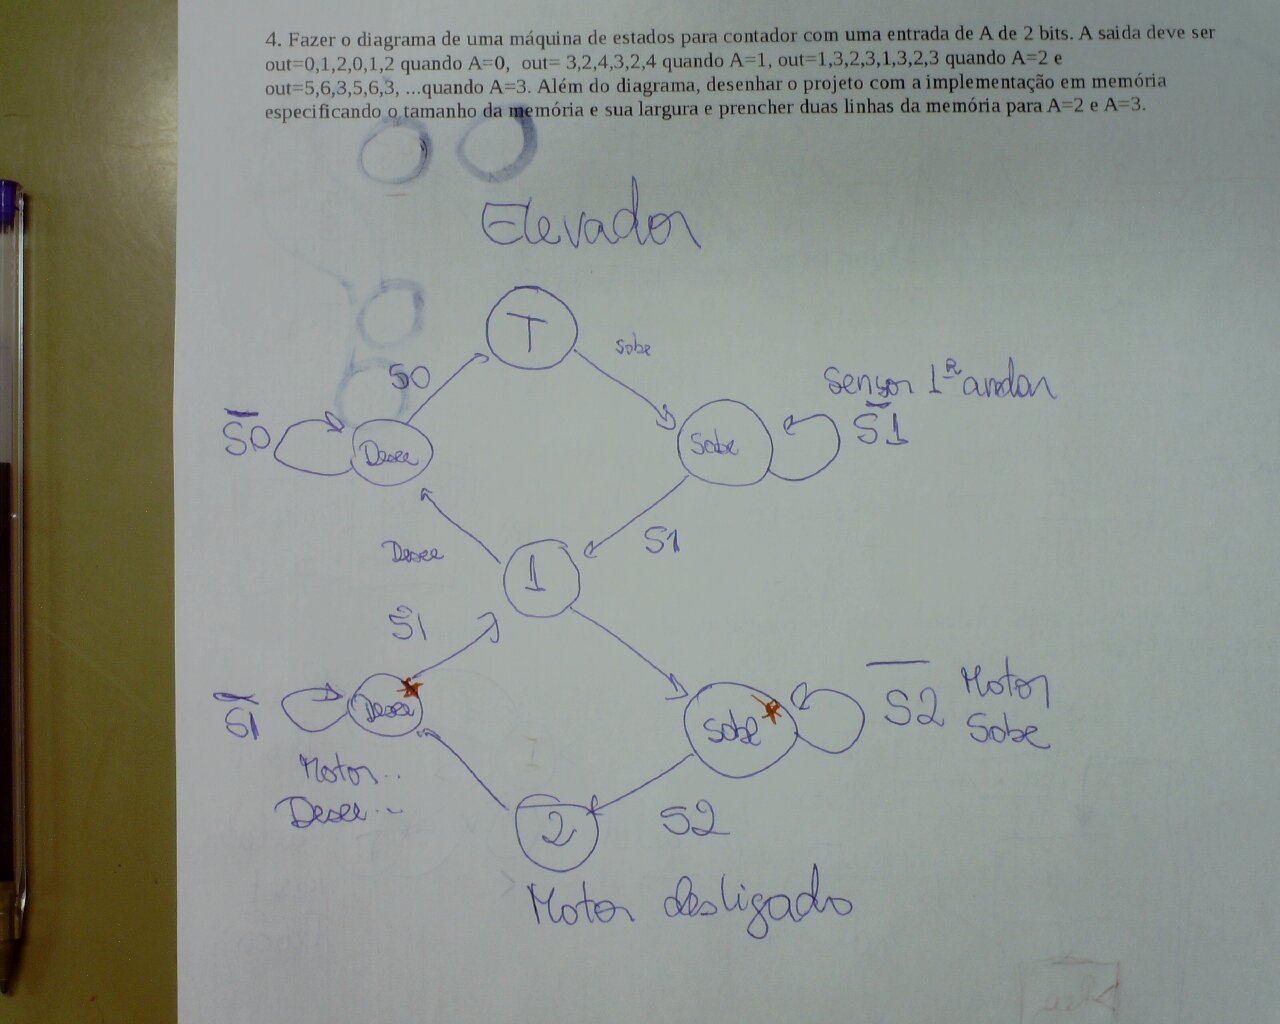 4. Fazer o diagrama de uma máquina de estados para contador com uma entrada de A de 2 bits. A saida deve ser
out=0,1,2,0,1,2 quando A=0, out= 3,2,4,3,2,4 quando A=1, out=1,3,2,3,1,3,2,3 quando A=2 e
out=5,6,3,5,6,3, ...quando A=3. Além do diagrama, desenhar o projeto com a implementação em memória
especificando o tamanho da memória e sua largura e prencher duas linhas da memória para A=2 e A=3.
Elevador
T
Sobe
S0
Sensor 1º andar
S̅0
Desce
Sobe
S̅1
Desce
S1
1
S1
S̅1
Desce
Sobe
S̅2̅ Motor
Sobe
Motor..
Desce...
2
S2
Motor desligado